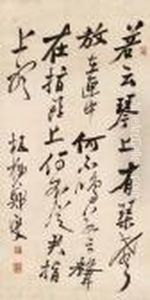 若云琴上有琴聲
放在匣中何不鳴若云聲
在指頭上何不于君指
上聽
板橋鄭燮